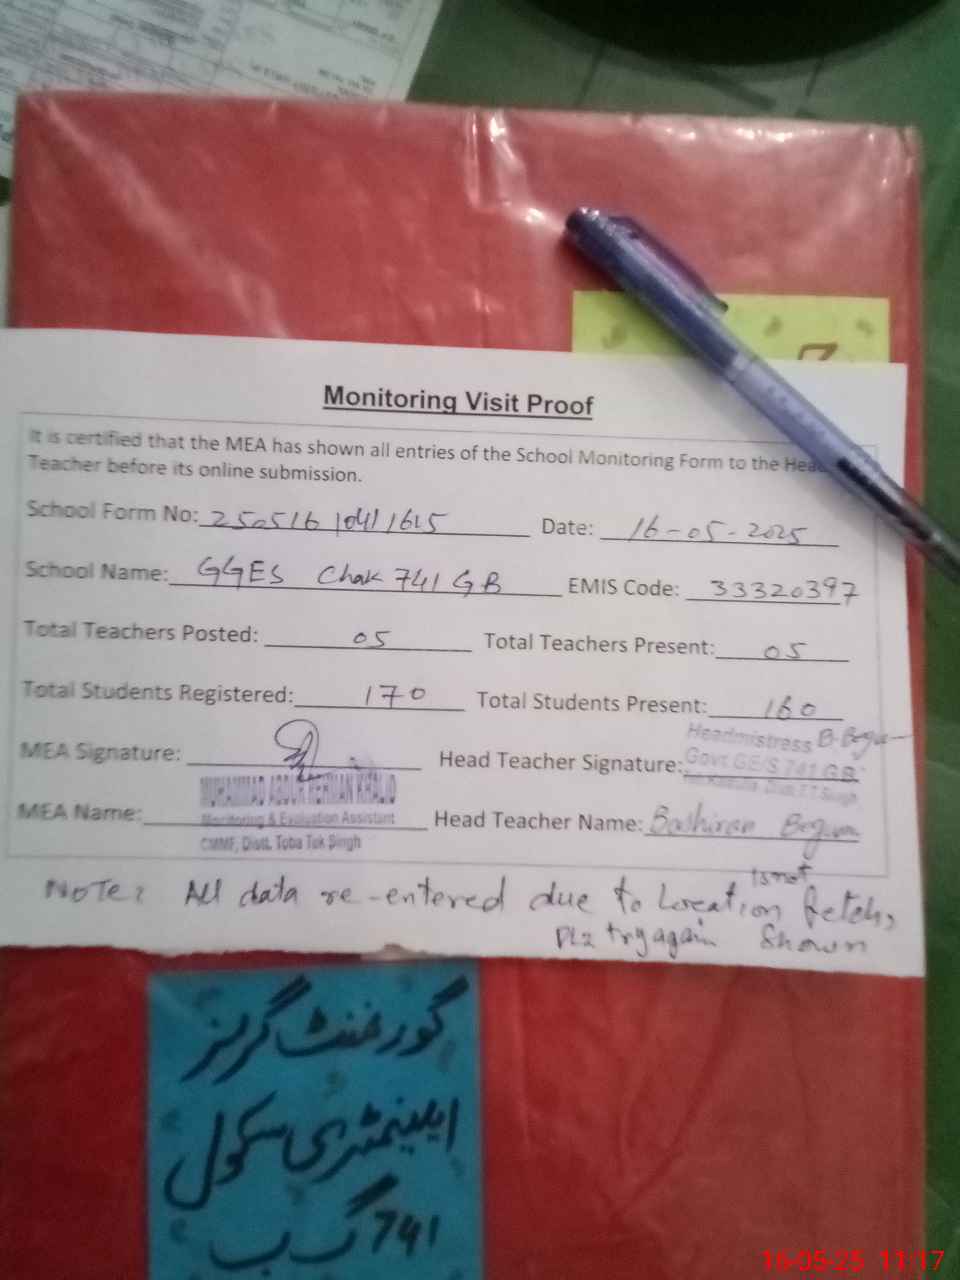 Monitoring Visit Proof
It is certified that the MEA has shown all entries of the School Monitoring Form to the Head
Teacher before its online submission.
School Form No: 250516 1041 1615 Date: 16-05-2025
School Name: GGES Chak 741 GB EMIS Code: 33320397
Total Teachers Posted: 05 Total Teachers Present: 05
Total Students Registered: 170 Total Students Present: 160
MEA Signature: Head Teacher Signature: Headmistress B. Begum
Govt. GE/S 741 GB
MUHAMMAD ABDUR REHMAN KHALID
MEA Name: Monitoring & Evaluation Assistant Head Teacher Name: Bashiran Begum
CMMF, Distt. Toba Tek Singh
NOTE: All data re-entered due to Location is not fetch,
Plz try again Shown
گورنمنٹ گرلز
ایلیمنٹری سکول
741 گ ب
16-05-25 11:17